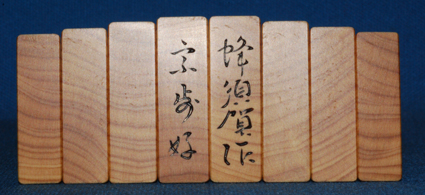 蜂須賀作
宗歩好